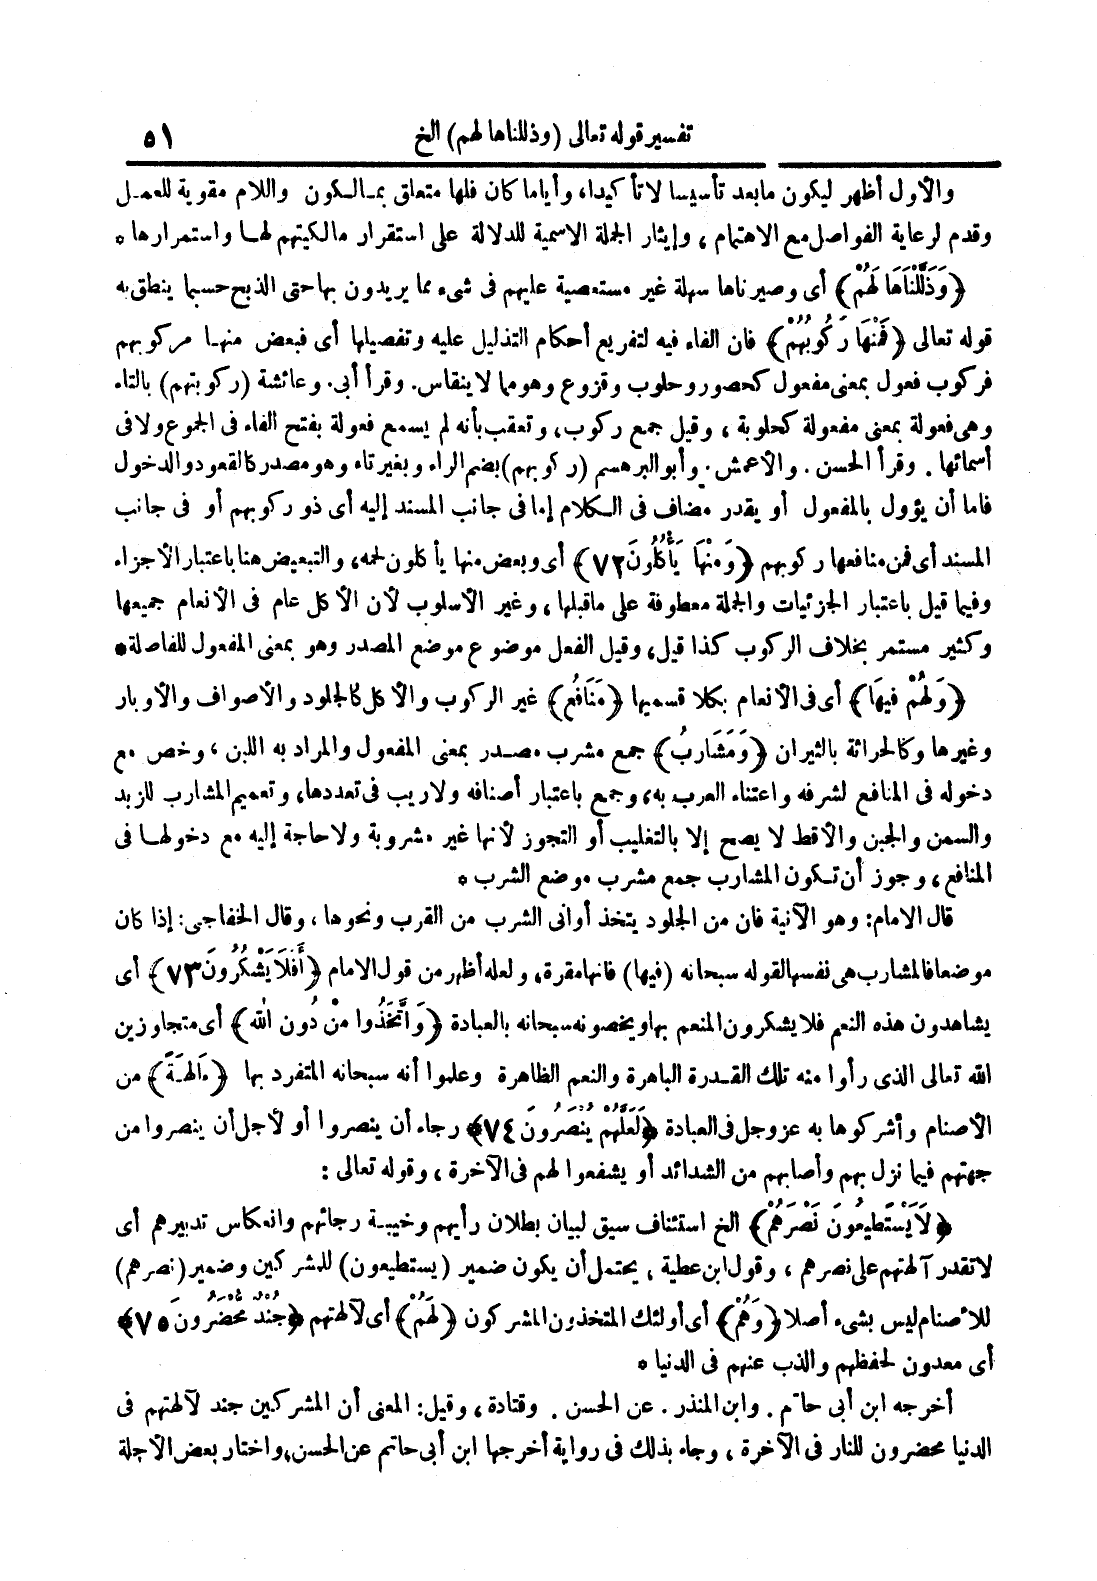 تفسير قوله تعالى (وذللناها لهم) الخ ٥١
والأول أظهر ليكون مابعد تأسيسا لا تأكيدا، وأياما كان فلها متعلق بمـالـكون واللام مقوية للعمـل
وقدم لرعاية الفواصل مع الاهتمام ، وإيثار الجملة الاسمية للدلالة على استقرار مالكيتهم لهـا واستمرارها *
﴿وَذَلَّلْنَاهَا لَهُمْ﴾ أى وصيرناها سهلة غير مستعصية عليهم فى شىء مما يريدون بها حتى الذبح حسبما ينطق به
قوله تعالى ﴿فَمِنْهَا رَكُوبُهُمْ﴾ فان الفاء فيه لتفريع أحكام التذليل عليه وتفصيلها أى فبعض منهـا مركوبهم
فركوب فعول بمعنى مفعول كحصور وحلوب وقزوع وهو مما لا ينقاس. وقرأ أبى. وعائشة (ركوبتهم) بالتاء
وهى فعولة بمعنى مفعولة كحلوبة ، وقيل جمع ركوب، وتعقب بأنه لم يسمع فعولة بفتح الفاء فى الجموع ولا فى
أسمائها . وقرأ الحسن . والأعمش . وأبو البرهسم (ركوبهم) بضم الراء وبغير تاء وهو مصدر كالقعود والدخول
فاما أن يؤول بالمفعول أو يقدر مضاف فى الـكلام إما فى جانب المسند إليه أى ذو ركوبهم أو فى جانب
المسند أى فمن منافعها ركوبهم ﴿وَمِنْهَا يَأْكُلُونَ ٧٢﴾ أى وبعض منها يأكلون لحمه، والتبعيض هنا باعتبار الأجزاء
وفيما قيل باعتبار الجزئيات والجملة معطوفة على ماقبلها ، وغير الأسلوب لأن الأكل عام فى الأنعام جميعها
وكثير مستمر بخلاف الركوب كذا قيل، وقيل الفعل موضوع موضع المصدر وهو بمعنى المفعول للفاصلة *
﴿وَلَهُمْ فِيهَا﴾ أى فى الأنعام بكلا قسميها ﴿مَنَافِعُ﴾ غير الركوب والأكل كالجلود والأصواف والأوبار
وغيرها وكالحراثة بالثيران ﴿وَمَشَارِبُ﴾ جمع مشرب مصـدر بمعنى المفعول والمراد به اللبن ، وخص مع
دخوله فى المنافع لشرفه واعتناء العرب به، وجمع باعتبار أصنافه ولاريب فى تعددها، وتعميم المشارب للزبد
والسمن والجبن والأقط لا يصح إلا بالتغليب أو التجوز لأنها غير مشروبة ولا حاجة إليه مع دخولهـا فى
المنافع ، وجوز أن تـكون المشارب جمع مشرب موضع الشرب *
قال الامام: وهو الآنية فان من الجلود يتخذ أوانى الشرب من القرب ونحوها ، وقال الخفاجى: إذا كان
موضعا فالمشارب هى نفسها لقوله سبحانه (فيها) فانها مقرة، ولعله أظهر من قول الامام ﴿أَفَلَا يَشْكُرُونَ ٧٣﴾ أى
يشاهدون هذه النعم فلا يشكرون المنعم بها ويخصونه سبحانه بالعبادة ﴿وَاتَّخَذُوا مِنْ دُونِ اللَّهِ﴾ أى متجاوزين
الله تعالى الذى رأوا منه تلك القـدرة الباهرة والنعم الظاهرة وعلموا أنه سبحانه المتفرد بها ﴿ءَالِهَةً﴾ من
الأصنام وأشركوها به عز وجل فى العبادة ﴿لَعَلَّهُمْ يُنْصَرُونَ ٧٤﴾ رجاء أن ينصروا أو لأجل أن ينصروا من
جهتهم فيما نزل بهم وأصابهم من الشدائد أو يشفعوا لهم فى الآخرة ، وقوله تعالى :
﴿لَا يَسْتَطِيعُونَ نَصْرَهُمْ﴾ الخ استئناف سيق لبيان بطلان رأيهم وخيبـة رجائهم وانعكاس تدبيرهم أى
لا تقدر آلهتهم على نصرهم ، وقول ابن عطية . يحتمل أن يكون ضمير (يستطيعون) للمشركين وضمير (نصرهم)
للأصنام ليس بشىء أصلا ﴿وَهُمْ﴾ أى أولئك المتخذون المشركون ﴿لَهُمْ﴾ أى لآلهتهم ﴿جُنْدٌ مُحْضَرُونَ ٧٥﴾
أى معدون لحفظهم والذب عنهم فى الدنيا *
أخرجه ابن أبى حاتم . وابن المنذر . عن الحسن . وقتادة ، وقيل: المعنى أن المشركين جند لآلهتهم فى
الدنيا محضرون للنار فى الآخرة ، وجاء بذلك فى رواية أخرجها ابن أبى حاتم عن الحسن، واختار بعض الأجلة